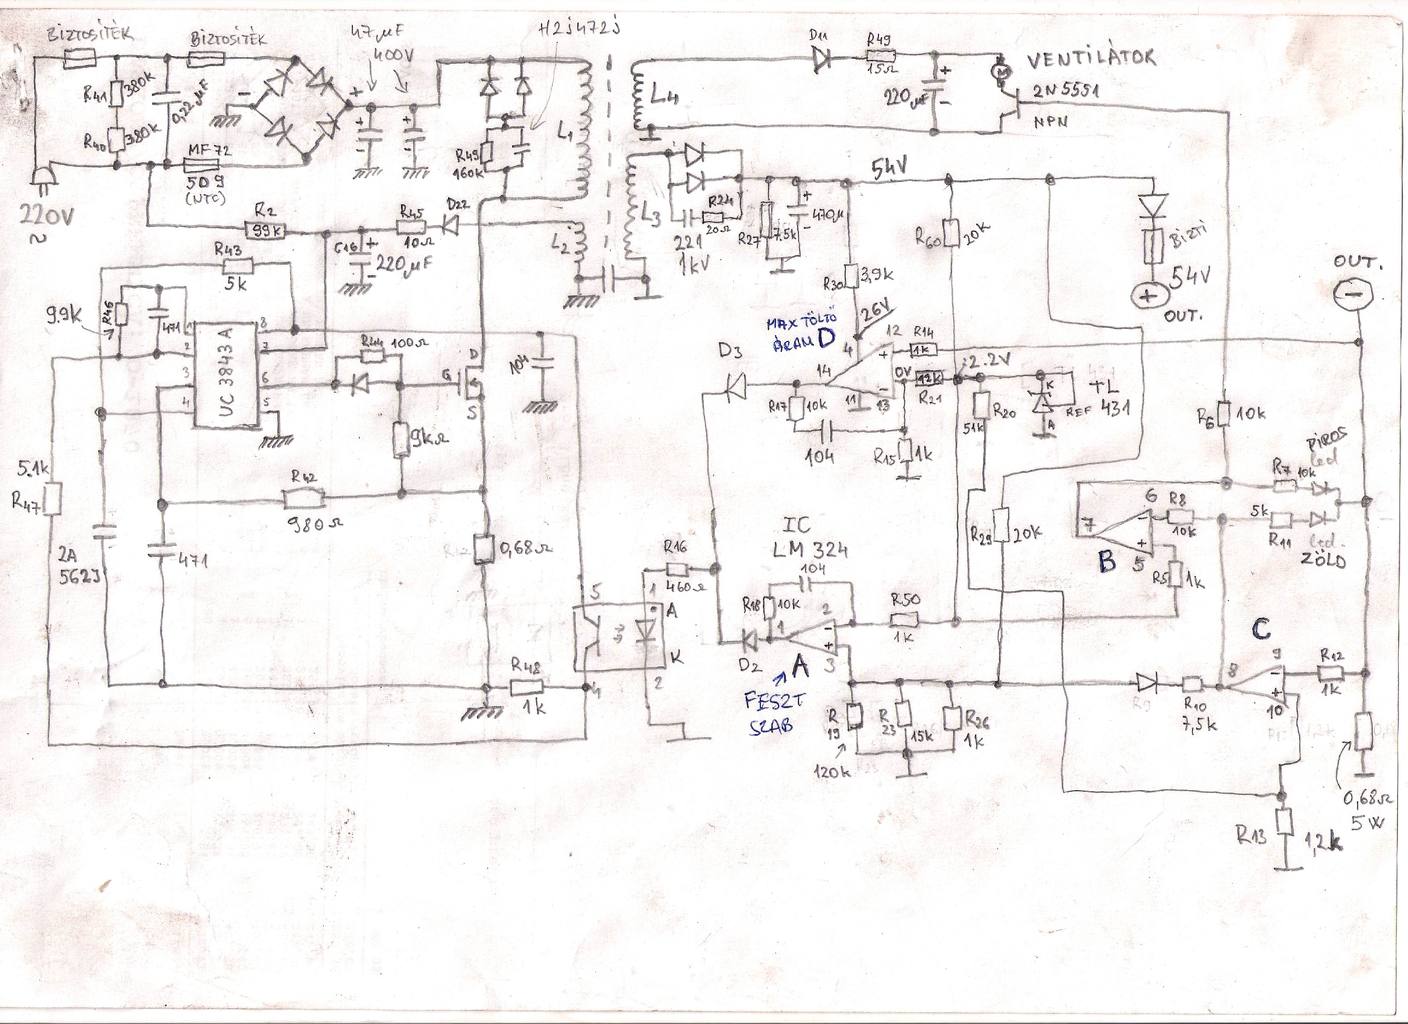 BIZTOSÍTÉK
BIZTOSÍTÉK
47µF
400V
H2j472j
R41
380k
0,22µF
R40
380k
MF72
5D9
(NTC)
220V
~
R49
160k
L1
L4
D11
R49
15Ω
220µF
+
-
M
VENTILÁTOR
2N5551
NPN
R2
99k
R45
10Ω
D22
C16
220µF
L2
L3
221
1kV
R24
20Ω
R27
7.5k
470µ
54V
R60
20k
BIZTI
54V
+
OUT.
OUT.
-
R43
5k
9.9K
R46
471
UC3843A
1
2
3
4
8
7
6
5
R44
100Ω
G
D
S
104
9kΩ
R42
980Ω
471
2A
562J
5.1k
R47
0,68Ω
R48
1k
5
4
1
A
K
2
R16
460Ω
R30
3,9k
26V
MAX TÖLTŐ
ÁRAM D
D3
14
4
11
12
13
R14
1k
0V
12k
R21
2.2V
R17
10k
104
R15
1k
R20
51k
K
REF
A
TL
431
R29
20k
IC
LM 324
104
R18
10k
1
2
3
D2
A
FESZT
SZAB
R50
1k
R19
120k
R23
15k
R26
1k
R6
10k
PIROS
led
R7
10k
5k
R11
led.
ZÖLD
B
7
6
5
R8
10k
R5
1k
C
8
9
10
R12
1k
R10
7,5k
R9
R13
1,2k
0,68Ω
5W